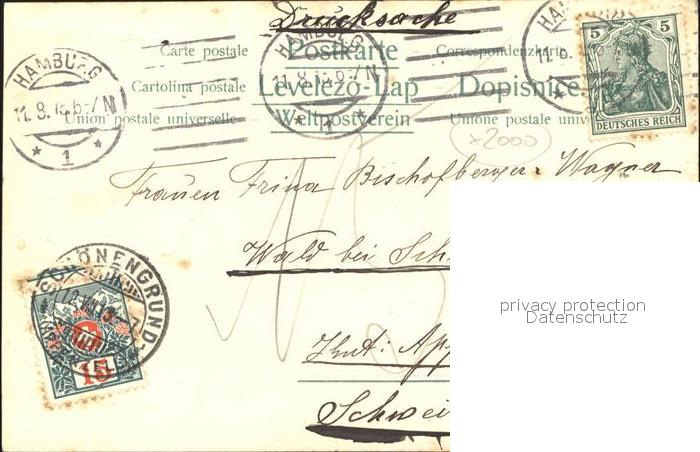 Drucksache
Carte postale Postkarte Correspondenzkarte
Cartolina postale Levelező-Lap Dopisnice
Union postale universelle Weltpostverein Unione postale univ
HAMBURG
11.8.13.6-7N
* 1 *
HAMBURG
11.8.13.6-7N
* 1 *
HAMBURG
11.8.
5 5
DEUTSCHES REICH
x2000
Frauen Frina Bischofberger-Wagner
Wald bei Sch
SCHÖNENGRUND
15
Knt: App
Schwei
privacy protection
Datenschutz